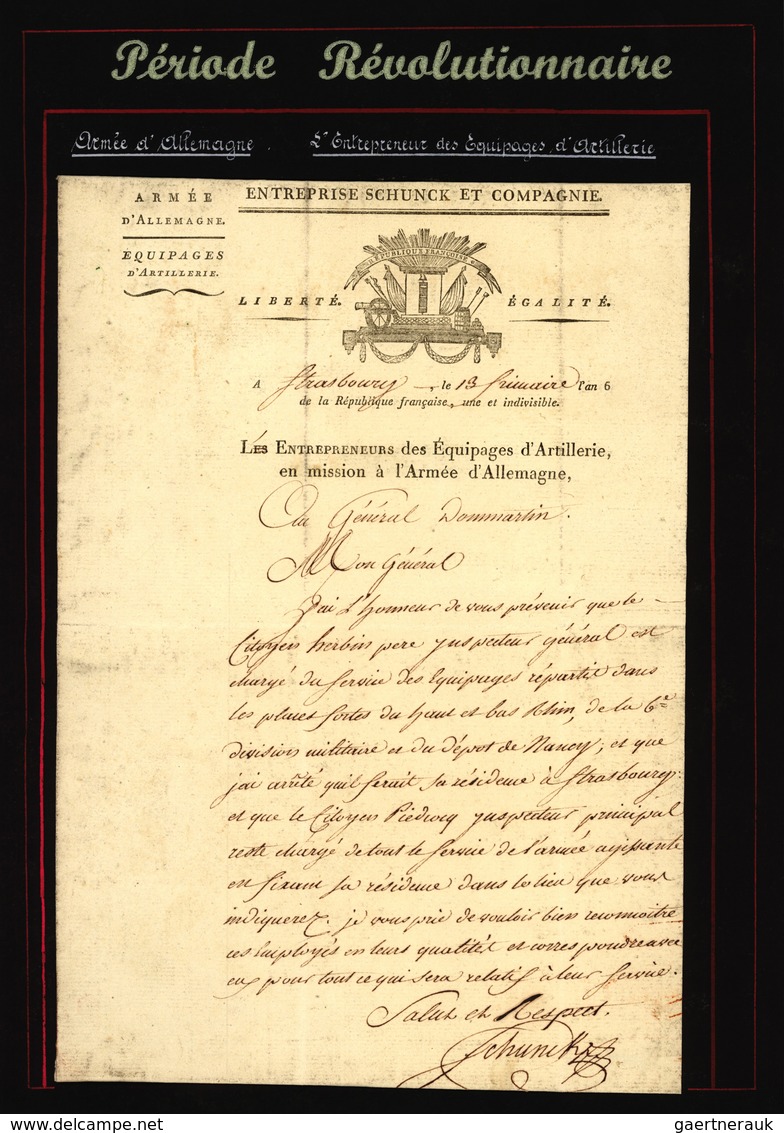 Période Révolutionnaire
Armée d'Allemagne. L'Entrepreneur des Equipages d'Artillerie
ARMÉE
D'ALLEMAGNE.
ÉQUIPAGES
D'ARTILLERIE.
ENTREPRISE SCHUNCK ET COMPAGNIE.
RÉPUBLIQUE FRANÇOISE
LIBERTÉ. ÉGALITÉ.
A Strasbourg, le 13 frimaire l'an 6
de la République française, une et indivisible.
LES ENTREPRENEURS des Équipages d'Artillerie,
en mission à l'Armée d'Allemagne,
Au Général Dommartin.
Mon Général
J'ai L'honneur de vous prévenir que le
Citoyen herbin pere ynspecteur général est
chargé du service des Equipages répartit dans
les places fortes du haut et bas Rhin, de la 6e
division militaire et du dépot de Nancy, et que
j'ai arrêté quil ferait sa résidence à Strasbourg.
et que le Citoyen Piedvocq ynspecteur principal
reste chargé de tout le service de l'armée agissante
en fixant sa résidence dans le lieu que vous
indiquerez. je vous prie de vouloir bien reconnoitre
ces Employés en leurs qualités et correspondre avec
eux pour tout ce qui sera relatif à leur service.
Salut et Respect.
Schunck
gaertnerauk